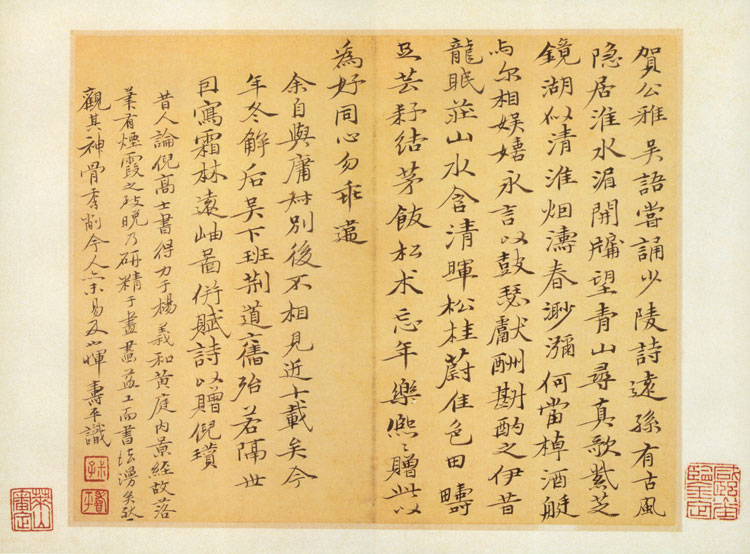 賀公雅吳語嘗誦少陵詩遠孫有古風
隐居淮水湄開牖望青山尋真歌紫芝
鏡湖似清淮烟濤春渺瀰何當棹酒艇
与尔相娱嬉永言以鼓瑟獻酬斟酌之伊昔
龍眠莊山水含清暉松桂蔚佳色田疇
且芸耔結茅飯松术忘年樂熙〻贈此以
為好同心勿乖違
余自與庸對別後不相見近十載矣今
年冬解后吳下班荆道舊殆若隔世
囙寫霜林遠岫啚併賦詩以贈倪瓚
昔人論倪高士書得力于楊羲和黄庭內景經故落
筆有煙霞之致晚乃研精于畫畫益工而書法
觀其神骨秀削今人未易及也惲壽平識
壽平